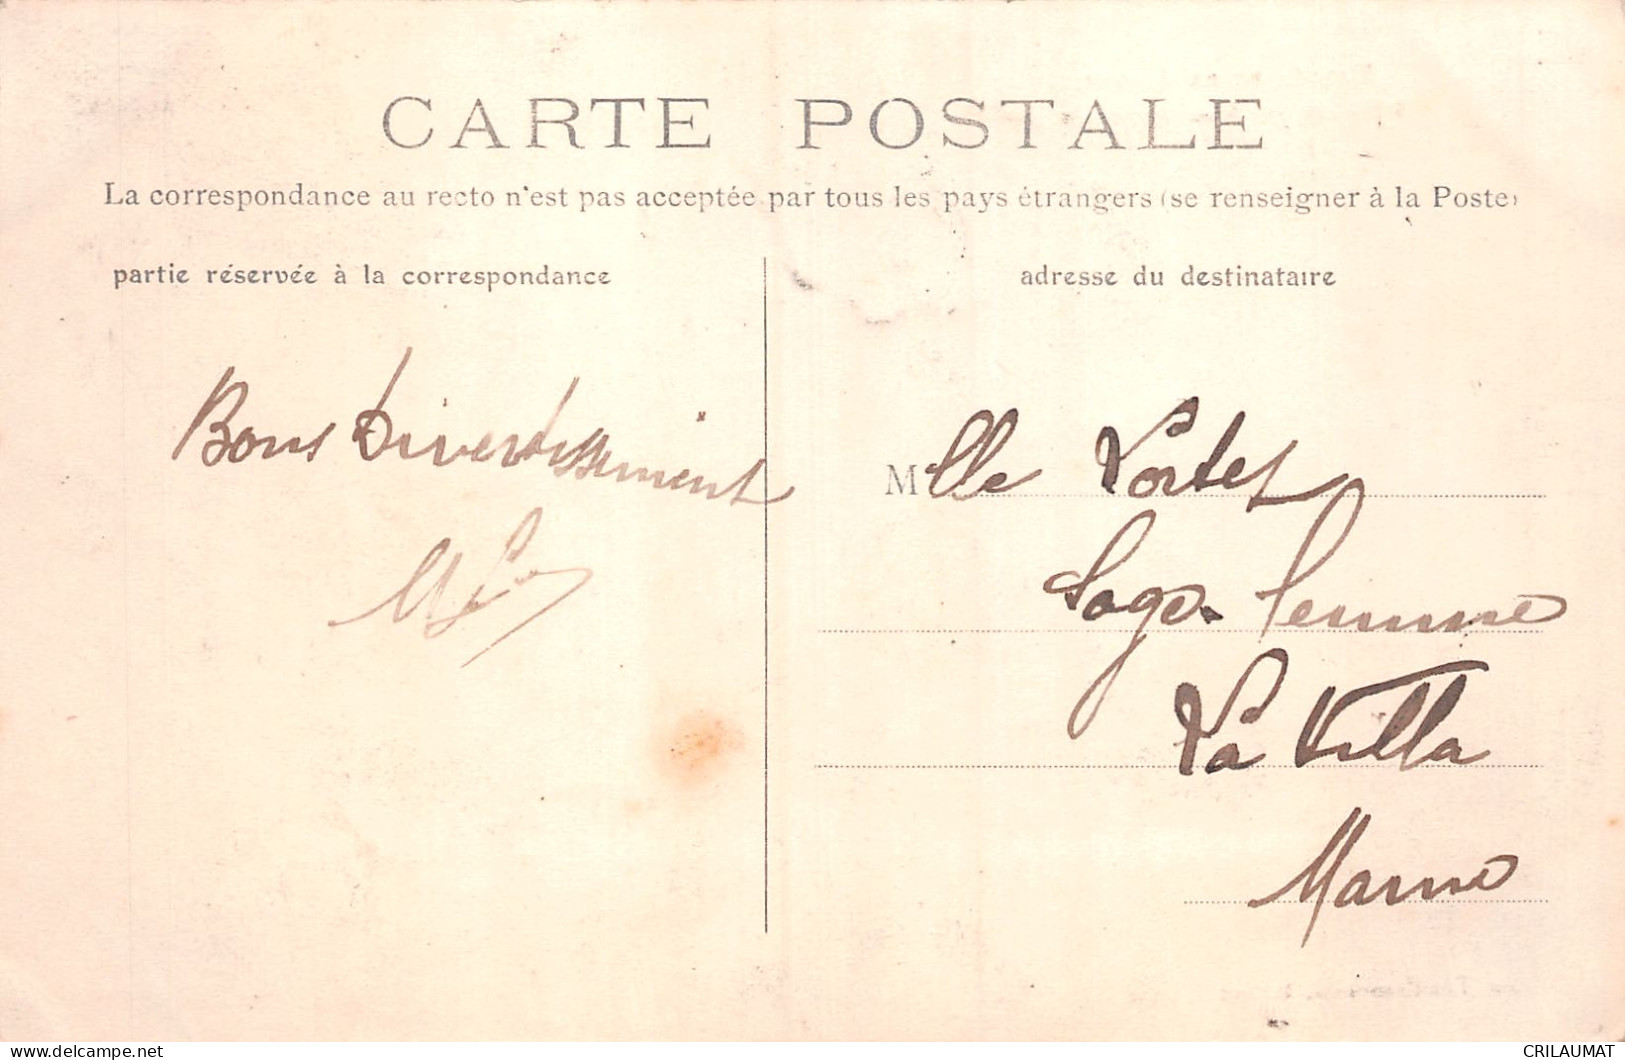 CARTE POSTALE
La correspondance au recto n'est pas acceptée par tous les pays étrangers (se renseigner à la Poste)
partie réservée à la correspondance
adresse du destinataire
Bons Divertissement
Mlle Portet
Sage-femme
La Villa
Marne
CRILAUMAT
delcampe.net